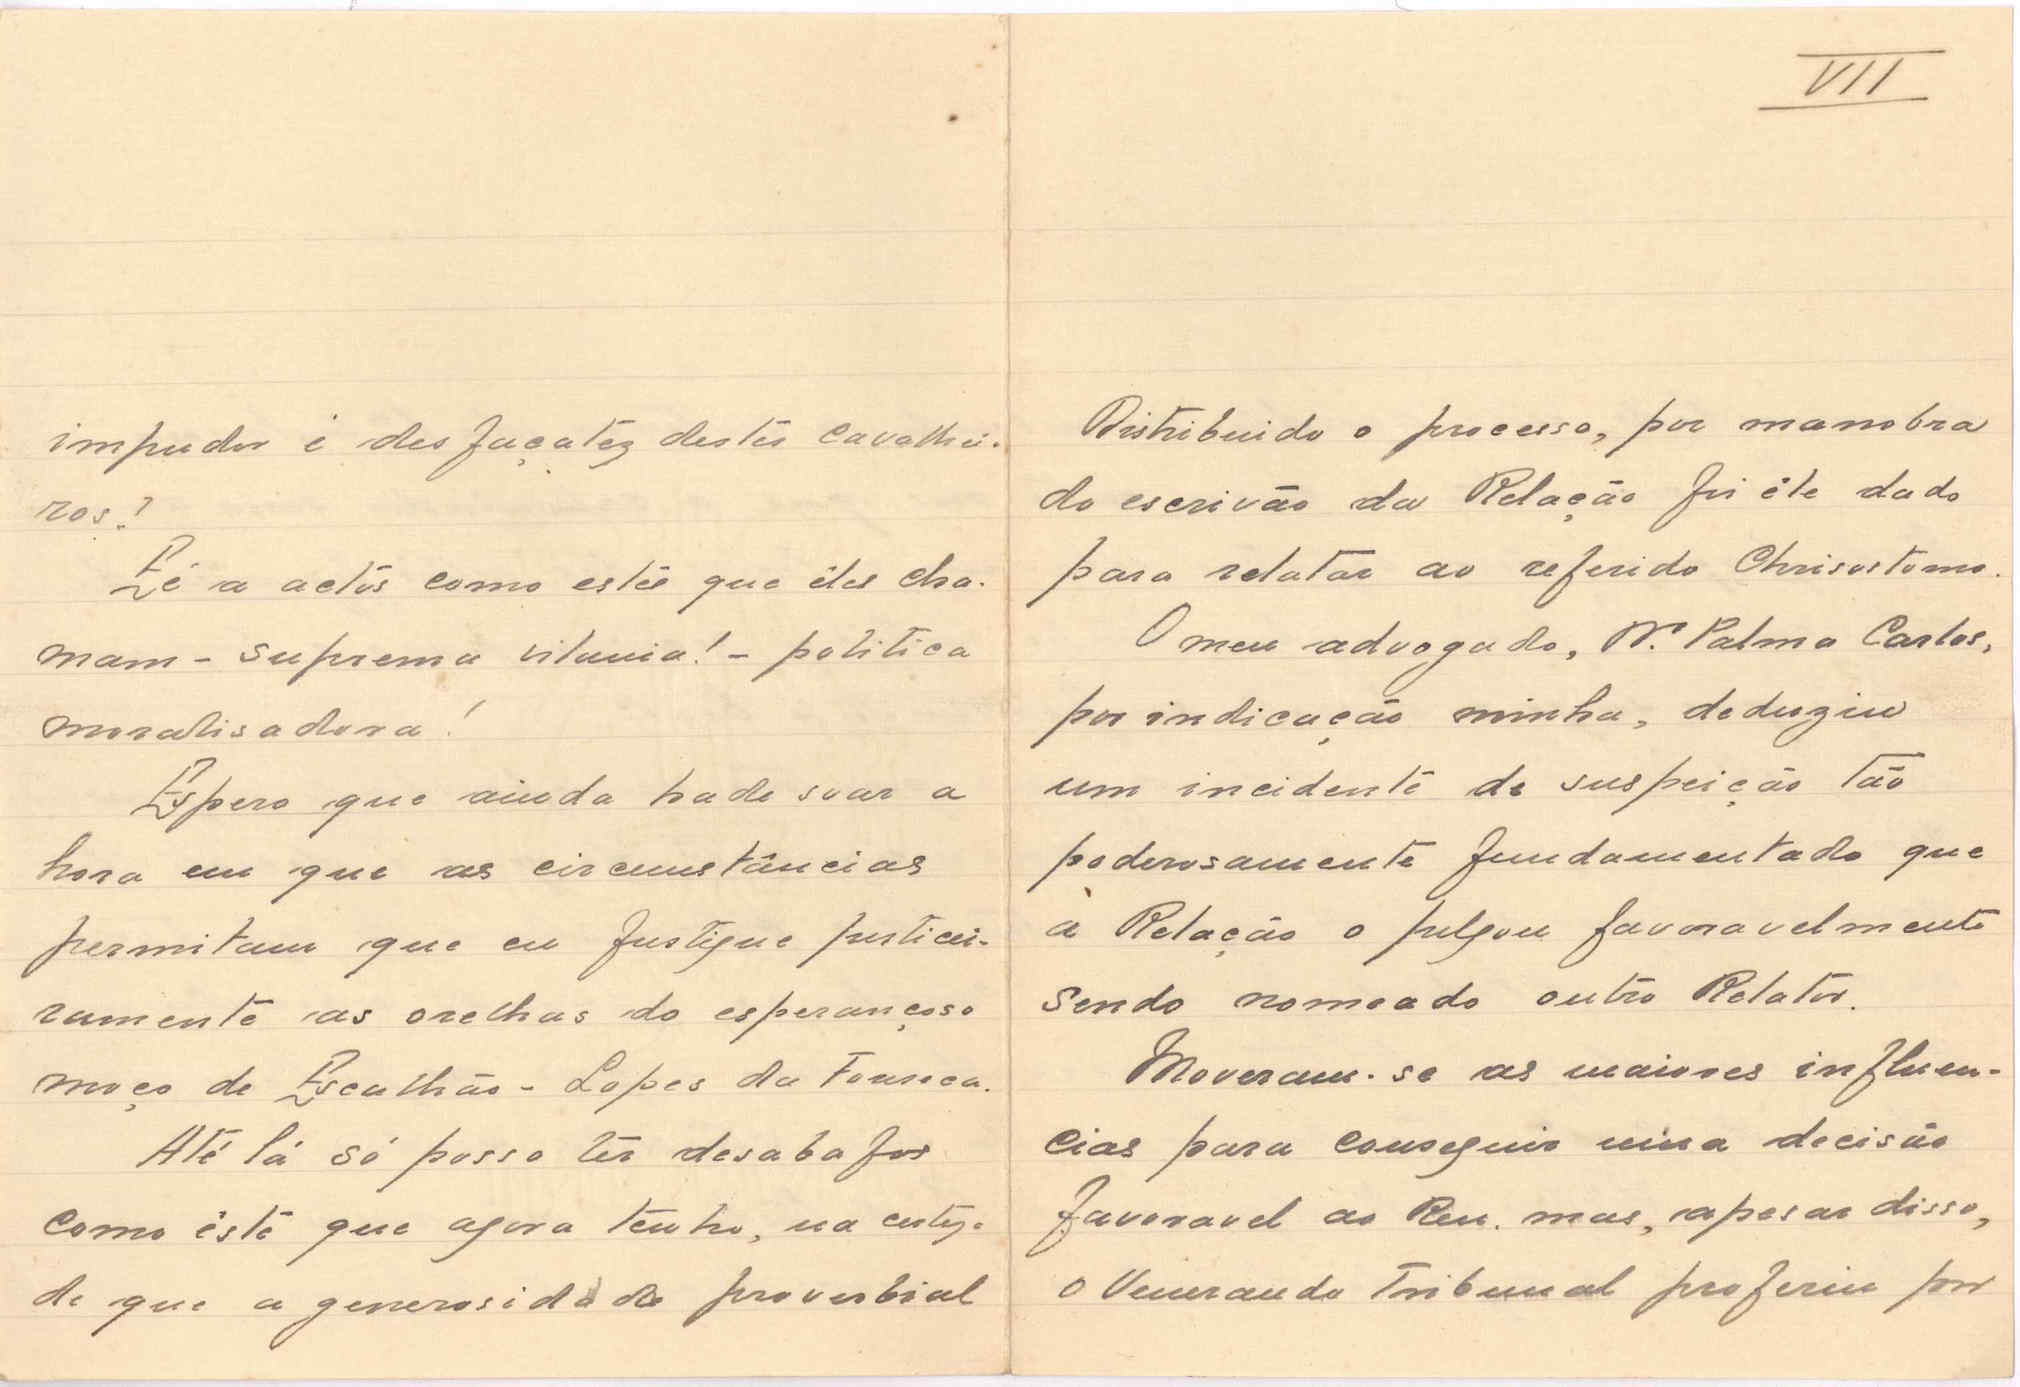 impudor e desfaçatêz destes cavalhei-
ros?
E é a actos como estes que êles cha-
mam - suprema vilania! - politica
moralisadora!
Espero que ainda hade soar a
hora em que as circunstâncias
permitam que eu fustigue justicei-
ramente as orelhas do esperançoso
moço de Escalhão - Lopes da Fonseca.
Até lá só posso ter desabafos
como êste que agora tenho, na certeza
de que a generosidade proverbial
VII
Distribuido o processo, por manobra
do escrivão da Relação foi êle dado
para relatar ao referido Chrisostomo.
O meu advogado, Dr. Palma Carlos,
por indicação minha, deduziu
um incidente de suspeição tão
poderosamente fundamentado que
a Relação o julgou favoravelmente
sendo nomeado outro Relator.
Moveram-se as maiores influen-
cias para conseguir uma decisão
favoravel ao Reu. mas, apesar disso,
o Venerando Tribunal proferiu por